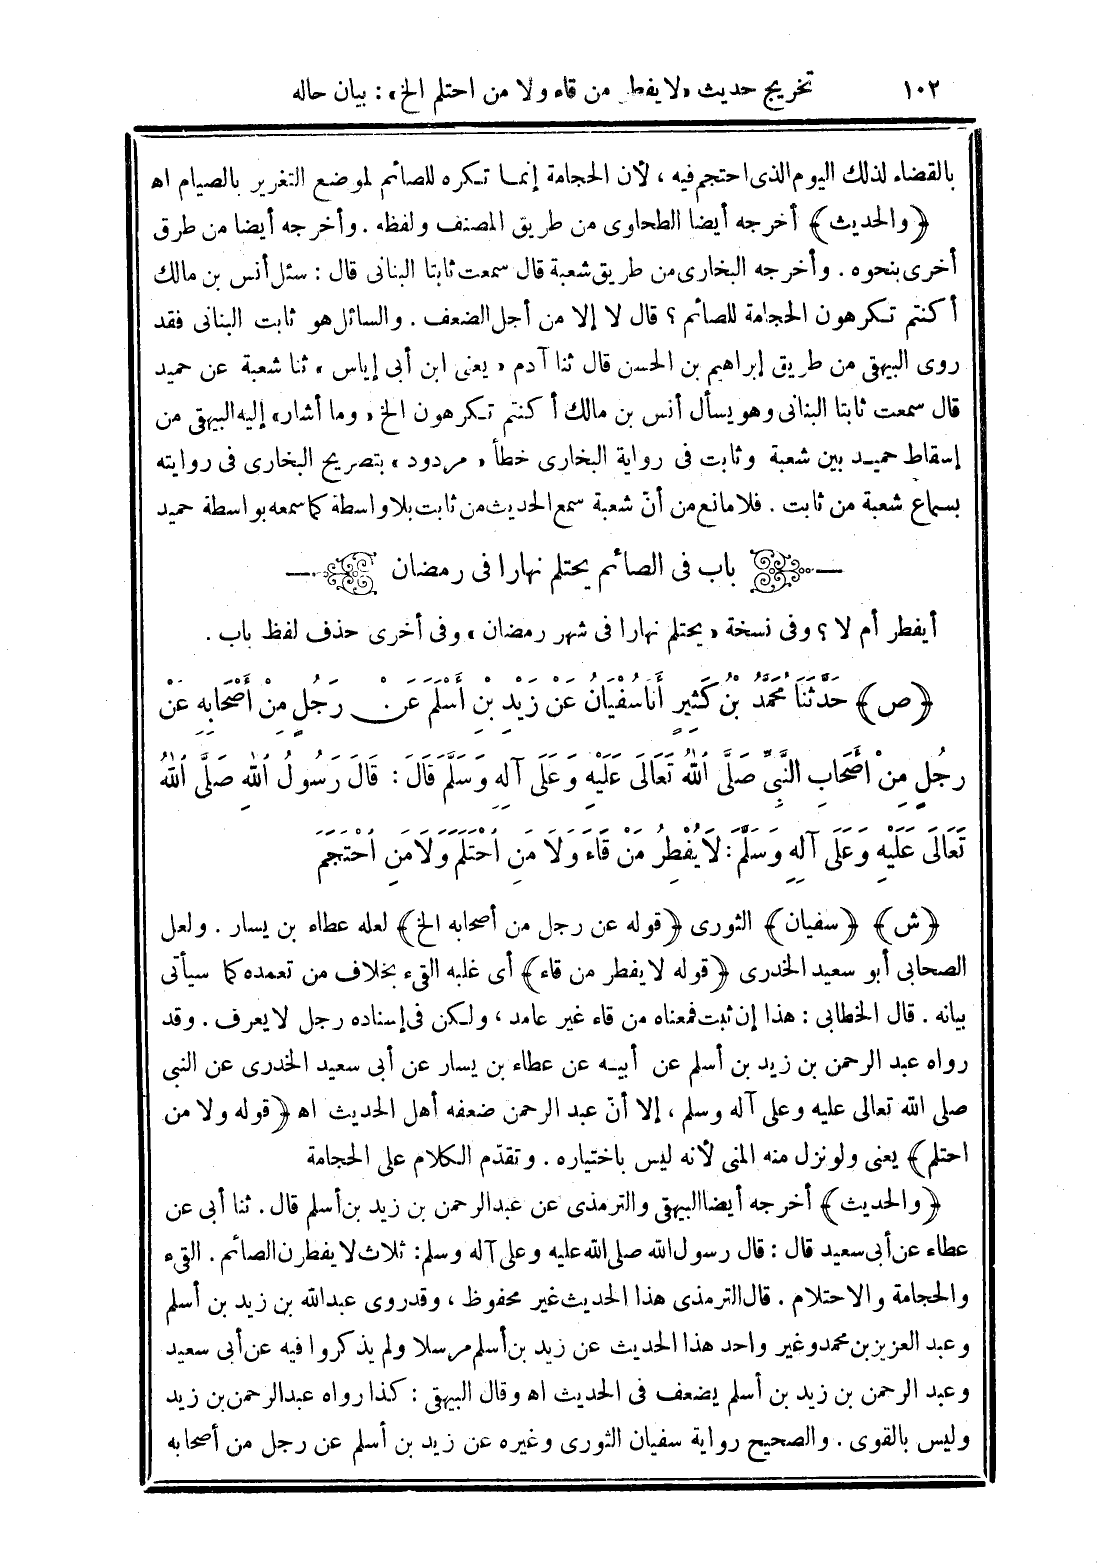 ١٠٢ تخريج حديث «لا يفطر من قاء ولا من احتلم الخ» : بيان حاله
بالقضاء لذلك اليوم الذى احتجم فيه ، لأن الحجامة إنمـا تـكره للصائم لموضع التغرير بالصيام اه
﴿والحديث﴾ أخرجه أيضا الطحاوى من طريق المصنف ولفظه . وأخرجه أيضا من طرق
أخرى بنحوه . وأخرجه البخارى من طريق شعبة قال سمعت ثابتا البنانى قال : سئل أنس بن مالك
أكنتم تـكرهون الحجامة للصائم ؟ قال لا إلا من أجل الضعف . والسائل هو ثابت البنانى فقد
روى البيهقى من طريق إبراهيم بن الحسن قال ثنا آدم «يعنى ابن أبى إياس» ثنا شعبة عن حميد
قال سمعت ثابتا البنانى وهو يسأل أنس بن مالك أكنتم تـكرهون الخ «وما أشار» إليه البيهقى من
إسقاط حميـد بين شعبة وثابت فى رواية البخارى خطأ «مردود» بتصريح البخارى فى روايته
بسماع شعبة من ثابت . فلا مانع من أنّ شعبة سمع الحديث من ثابت بلا واسطة كما سمعه بواسطة حميد
باب فى الصائم يحتلم نهارا فى رمضان
أيفطر أم لا ؟ وفى نسخة «يحتلم نهارا فى شهر رمضان» وفى أخرى حذف لفظ باب .
﴿ص﴾ حَدَّثَنَا مُحَمَّدُ بْنُ كَثِيرٍ أَنَا سُفْيَانُ عَنْ زَيْدِ بْنِ أَسْلَمَ عَنْ رَجُلٍ مِنْ أَصْحَابِهِ عَنْ
رَجُلٍ مِنْ أَصْحَابِ النَّبِيِّ صَلَّى اللهُ تَعَالَى عَلَيْهِ وَعَلَى آلِهِ وَسَلَّمَ قَالَ : قَالَ رَسُولُ اللهِ صَلَّى اللهُ
تَعَالَى عَلَيْهِ وَعَلَى آلِهِ وَسَلَّمَ : لَا يُفْطِرُ مَنْ قَاءَ وَلَا مَنِ احْتَلَمَ وَلَا مَنِ احْتَجَمَ
﴿ش﴾ ﴿سفيان﴾ الثورى ﴿قوله عن رجل من أصحابه الخ﴾ لعله عطاء بن يسار . ولعل
الصحابى أبو سعيد الخدرى ﴿قوله لا يفطر من قاء﴾ أى غلبه القىء بخلاف من تعمده كما سيأتى
بيانه . قال الخطابى : هذا إن ثبت فمعناه من قاء غير عامد ، ولـكن فى إسناده رجل لا يعرف . وقد
رواه عبد الرحمن بن زيد بن أسلم عن أبيـه عن عطاء بن يسار عن أبى سعيد الخدرى عن النبى
صلى الله تعالى عليه وعلى آله وسلم ، إلا أنّ عبد الرحمن ضعفه أهل الحديث اه ﴿قوله ولا من
احتلم﴾ يعنى ولو نزل منه المنى لأنه ليس باختياره . وتقدّم الـكلام على الحجامة
﴿والحديث﴾ أخرجه أيضا البيهقى والترمذى عن عبد الرحمن بن زيد بن أسلم قال . ثنا أبى عن
عطاء عن أبى سعيد قال : قال رسول الله صلى الله عليه وعلى آله وسلم : ثلاث لا يفطرن الصائم . القىء
والحجامة والاحتلام . قال الترمذى هذا الحديث غير محفوظ ، وقد روى عبد الله بن زيد بن أسلم
وعبد العزيز بن محمد وغير واحد هذا الحديث عن زيد بن أسلم مرسلا ولم يذكروا فيه عن أبى سعيد
وعبد الرحمن بن زيد بن أسلم يضعف فى الحديث اه وقال البيهقى : كذا رواه عبد الرحمن بن زيد
وليس بالقوى . والصحيح رواية سفيان الثورى وغيره عن زيد بن أسلم عن رجل من أصحابه